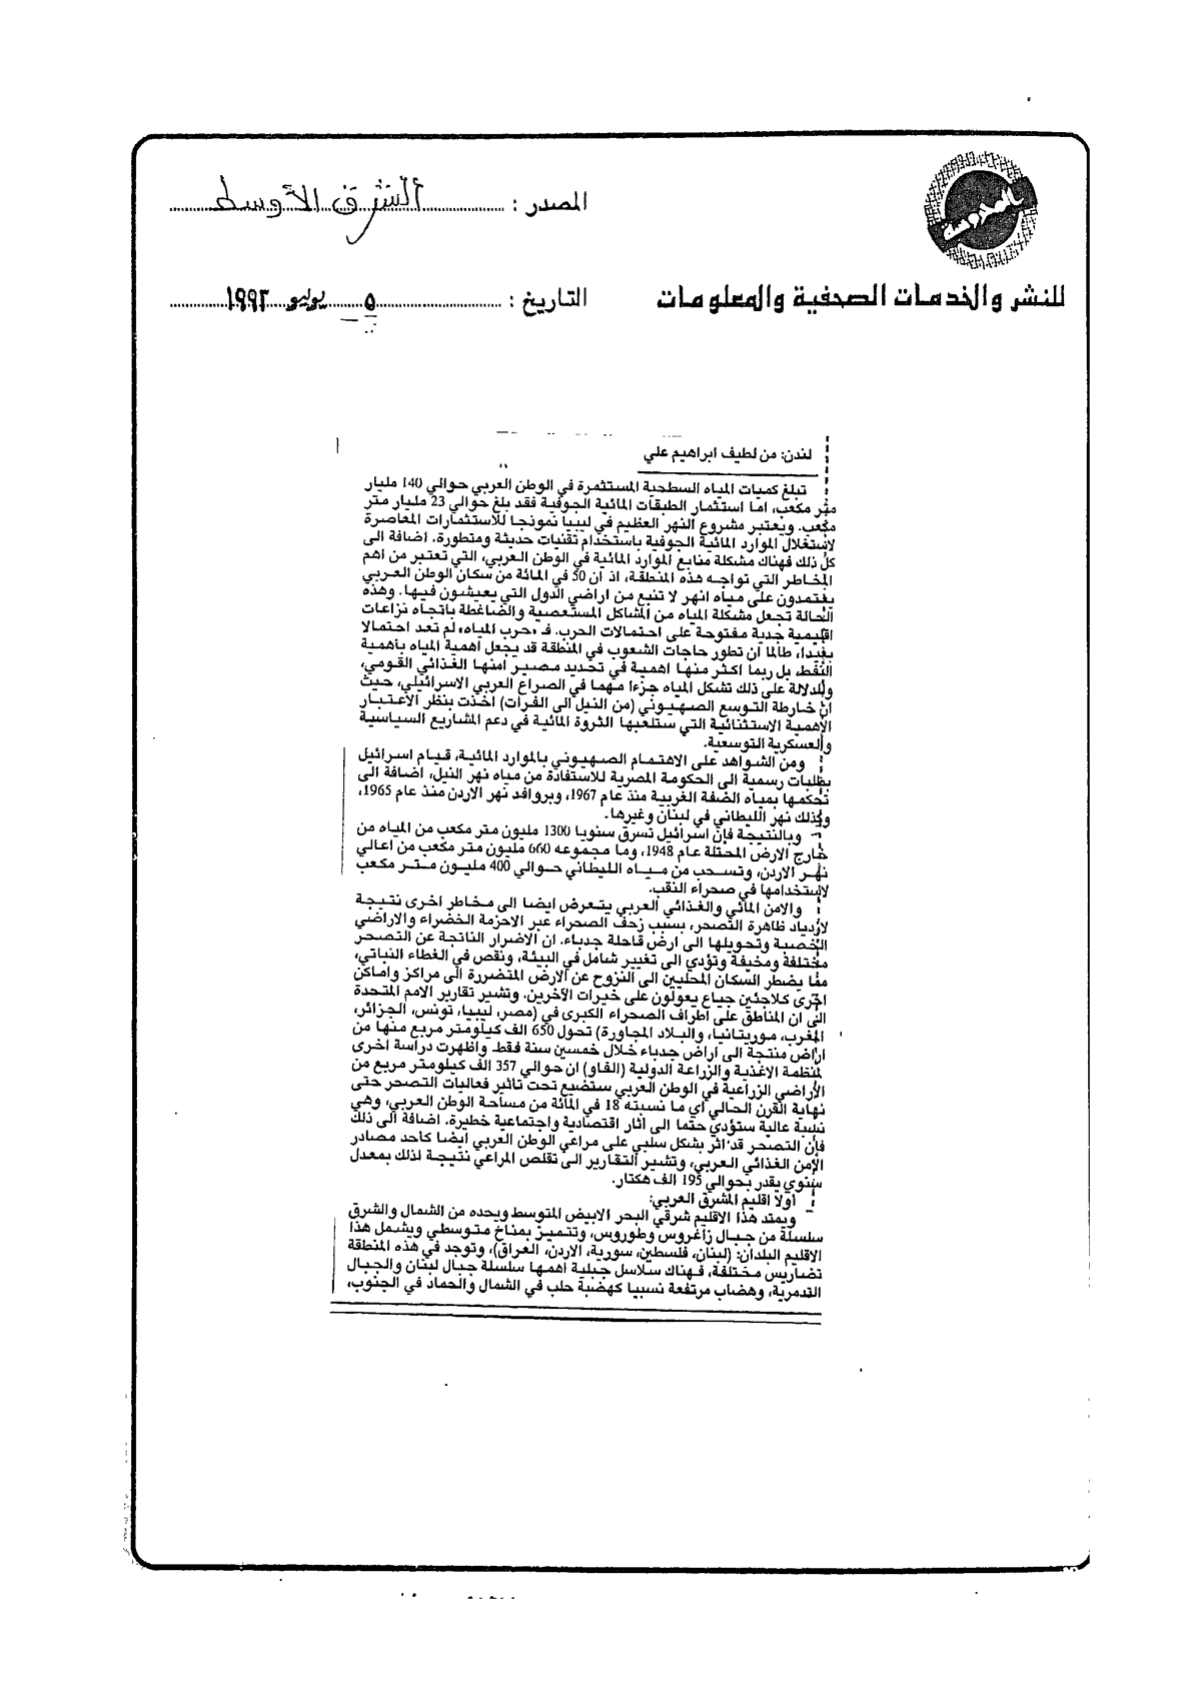 المصدر : الشرق الأوسط
للنشر والخدمات الصحفية والمعلومات
التاريخ : ٥ يوليو ١٩٩٢
لندن: من لطيف ابراهيم علي
تبلغ كميات المياه السطحية المستثمرة في الوطن العربي حوالي 140 مليار
متر مكعب، اما استثمار الطبقات المائية الجوفية فقد بلغ حوالي 23 مليار متر
مكعب. ويعتبر مشروع النهر العظيم في ليبيا نموذجا للاستثمارات المعاصرة
لاستغلال الموارد المائية الجوفية باستخدام تقنيات حديثة ومتطورة. اضافة الى
كل ذلك فهناك مشكلة منابع الموارد المائية في الوطن العربي، التي تعتبر من اهم
المخاطر التي تواجه هذه المنطقة، اذ ان 50 في المائة من سكان الوطن العربي
يعتمدون على مياه انهر لا تنبع من اراضي الدول التي يعيشون فيها. وهذه
الحالة تجعل مشكلة المياه من المشاكل المستعصية والضاغطة باتجاه نزاعات
اقليمية جدية مفتوحة على احتمالات الحرب. فـ «حرب المياه» لم تعد احتمالا
بعيدا، طالما ان تطور حاجات الشعوب في المنطقة قد يجعل اهمية المياه باهمية
النفط، بل ربما اكثر منها اهمية في تحديد مصير امنها الغذائي القومي،
وللدلالة على ذلك تشكل المياه جزءا مهما في الصراع العربي الاسرائيلي، حيث
ان خارطة التوسع الصهيوني (من النيل الى الفرات) اخذت بنظر الاعتبار
الاهمية الاستثنائية التي ستلعبها الثروة المائية في دعم المشاريع السياسية
والعسكرية التوسعية.
ومن الشواهد على الاهتمام الصهيوني بالموارد المائية، قيام اسرائيل
بطلبات رسمية الى الحكومة المصرية للاستفادة من مياه نهر النيل، اضافة الى
تحكمها بمياه الضفة الغربية منذ عام 1967، وبروافد نهر الاردن منذ عام 1965،
وكذلك نهر الليطاني في لبنان وغيرها.
وبالنتيجة فإن اسرائيل تسرق سنويا 1300 مليون متر مكعب من المياه من
خارج الارض المحتلة عام 1948، وما مجموعه 660 مليون متر مكعب من اعالي
نهر الاردن، وتسحب من مياه الليطاني حوالي 400 مليون متر مكعب
لاستخدامها في صحراء النقب.
والامن المائي والغذائي العربي يتعرض ايضا الى مخاطر اخرى نتيجة
لازدياد ظاهرة التصحر، بسبب زحف الصحراء عبر الاحزمة الخضراء والاراضي
الخصبة وتحويلها الى ارض قاحلة جدباء. ان الاضرار الناتجة عن التصحر
مختلفة ومخيفة وتؤدي الى تغيير شامل في البيئة، ونقص في الغطاء النباتي،
مما يضطر السكان المحليين الى النزوح عن الارض المتضررة الى مراكز واماكن
اخرى كلاجئين جياع يعولون على خيرات الآخرين. وتشير تقارير الامم المتحدة
الى ان المناطق على اطراف الصحراء الكبرى في (مصر، ليبيا، تونس، الجزائر،
المغرب، موريتانيا، والبلاد المجاورة) تحول 650 الف كيلومتر مربع منها من
اراض منتجة الى اراض جدباء خلال خمسين سنة فقط. واظهرت دراسة اخرى
لمنظمة الاغذية والزراعة الدولية (الفاو) ان حوالي 357 الف كيلومتر مربع من
الأراضي الزراعية في الوطن العربي ستضيع تحت تاثير فعاليات التصحر حتى
نهاية القرن الحالي اي ما نسبته 18 في المائة من مساحة الوطن العربي، وهي
نسبة عالية ستؤدي حتما الى آثار اقتصادية واجتماعية خطيرة. اضافة الى ذلك
فإن التصحر قد اثر بشكل سلبي على مراعي الوطن العربي ايضا كاحد مصادر
الأمن الغذائي العربي، وتشير التقارير الى تقلص المراعي نتيجة لذلك بمعدل
سنوي يقدر بحوالي 195 الف هكتار.
اولا اقليم المشرق العربي:
ويمتد هذا الاقليم شرقي البحر الابيض المتوسط ويحده من الشمال والشرق
سلسلة من جبال زاغروس وطوروس، وتتميز بمناخ متوسطي ويشمل هذا
الاقليم البلدان: (لبنان، فلسطين، سورية، الاردن، العراق)، وتوجد في هذه المنطقة
تضاريس مختلفة، فهناك سلاسل جبلية اهمها سلسلة جبال لبنان والجبال
التدمرية، وهضاب مرتفعة نسبيا كهضبة حلب في الشمال والحماد في الجنوب،